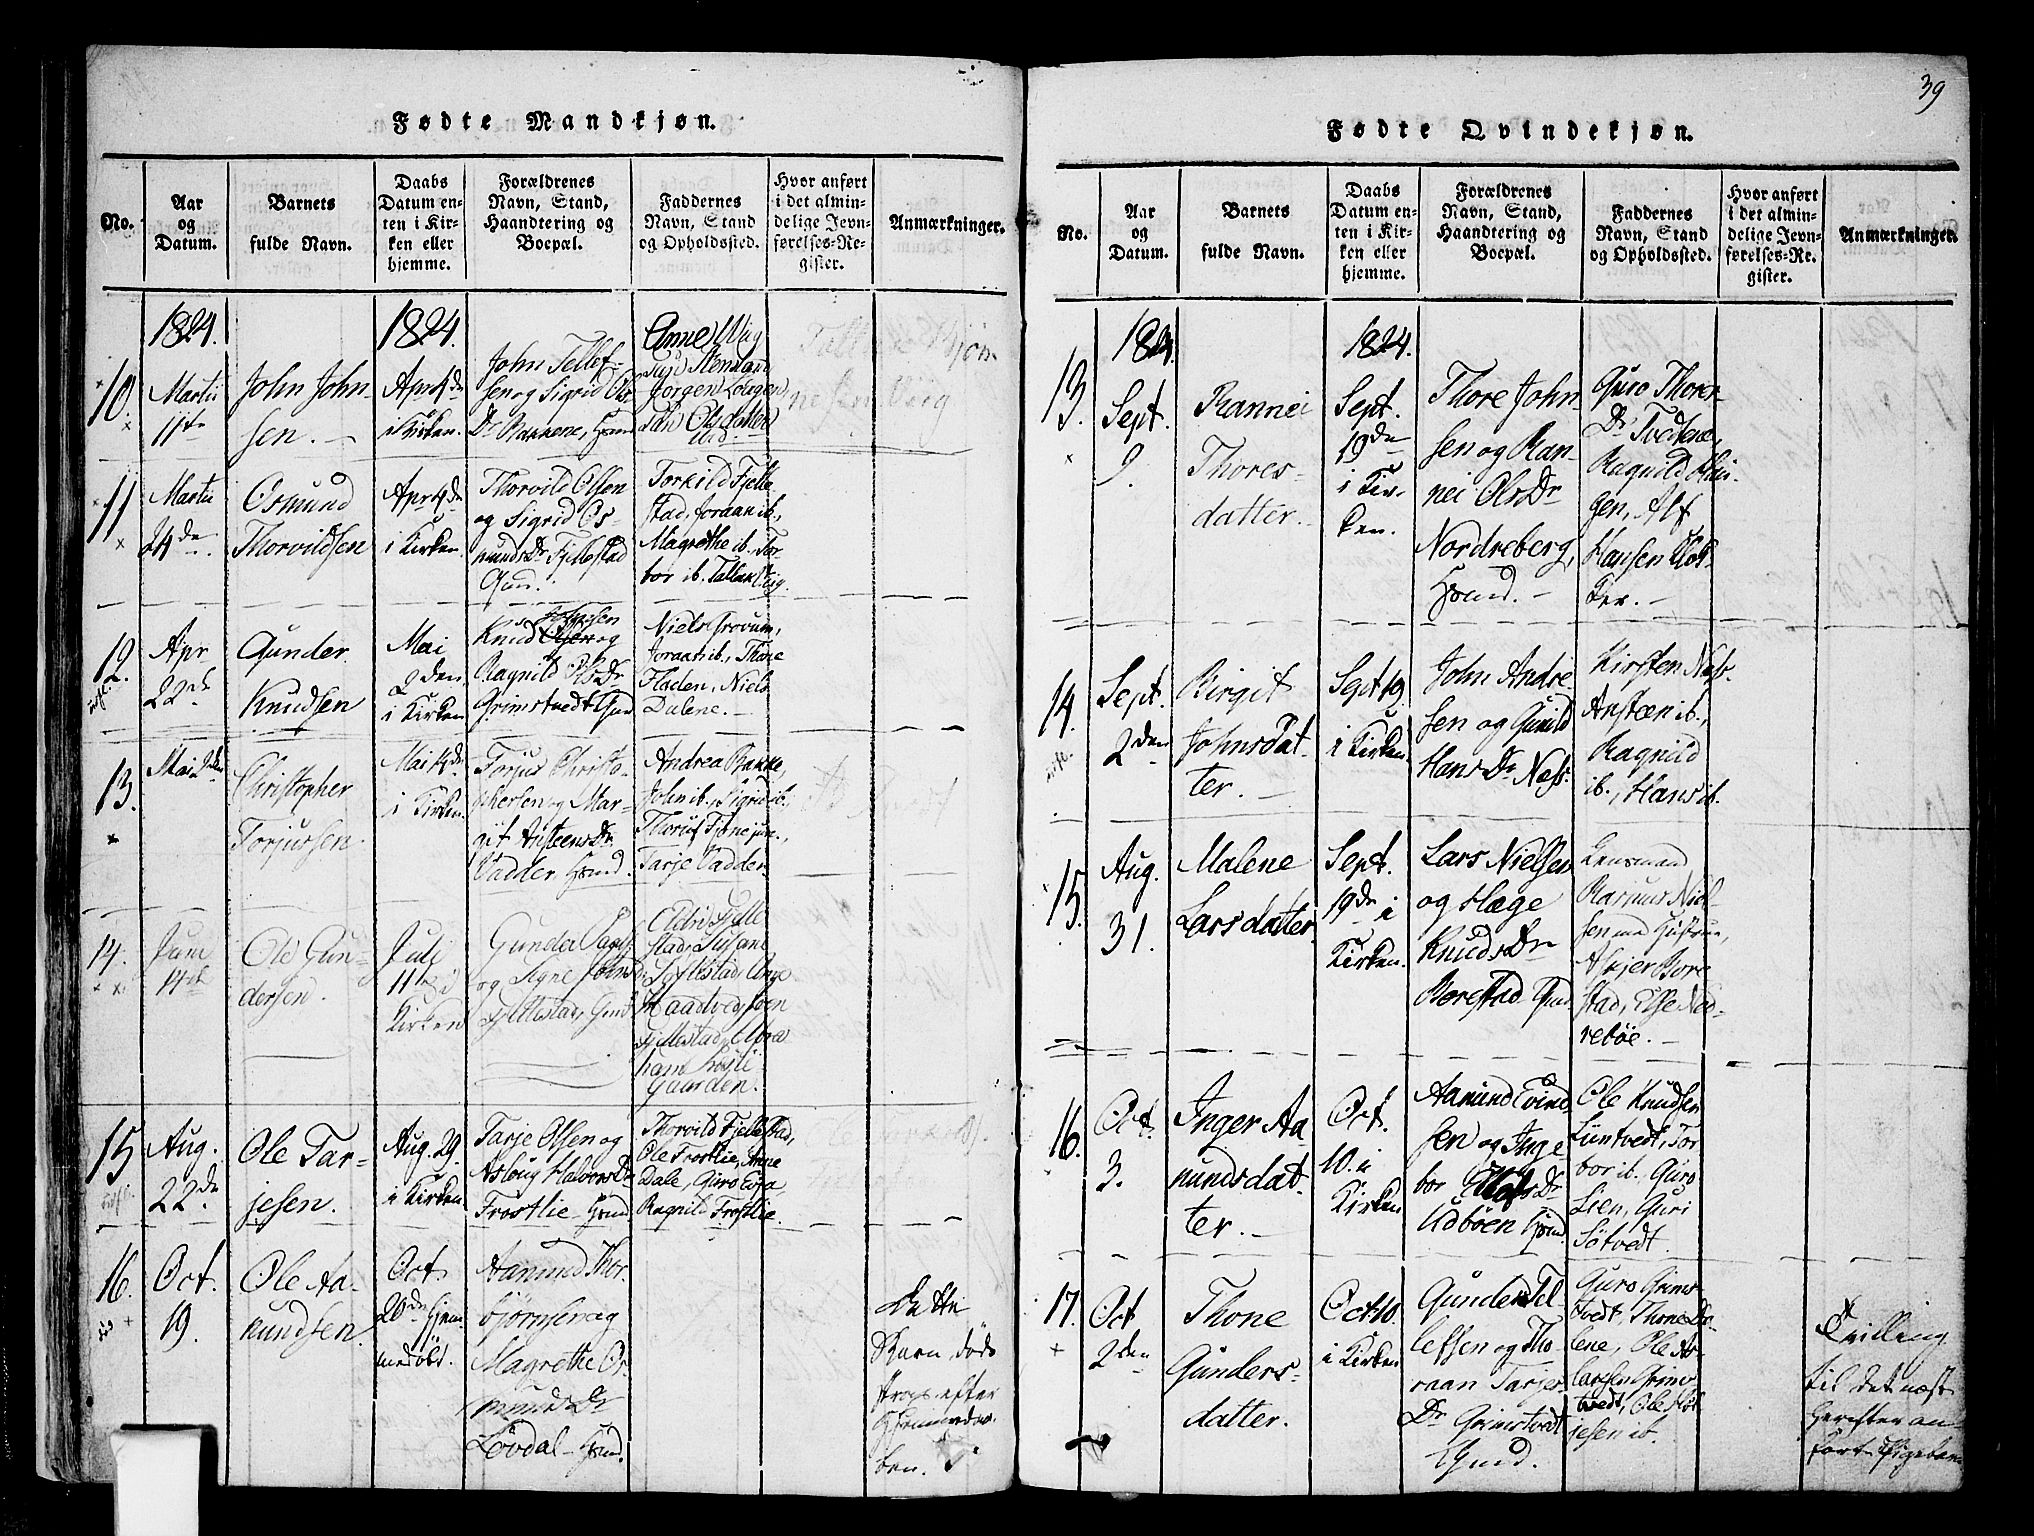 39
Fødte Mandkjøn.
No.
Aar
og
Datum.
Barnets
fulde Navn.
Daabs
Datum en-
ten i Kir-
ken eller
hjemme.
Forældrenes
Navn, Stand,
Haandtering og
Boepæl.
Faddernes
Navn, Stand
og Opholdssted.
Hvor anført
i det almin-
delige Jevn-
førelses-Re-
gister.
Anmærkninger.
1824.
1824.
10.
Martii
11te
John John-
sen.
Apr 4de
i Kirken.
John Tellef-
sen og Sigrid Ols
Dr Bakkene, Gmd
Anne
Jørgen
Olsdatter
ibid.
11
Martii
24de
Osmund
Thorvildsen
Apr 4de
i Kirken
Thorvild Olsen
og Sigrid Os-
munds Dr Fjellestad
Gmd.
Torkild Fjelle
stad, Joraan ib.,
Magrethe ib. Tor-
bor ib. Tallak
12.
Apr
22de
Gunder
Knudsen
Mai
2den
i Kirken
Johnsen
Knud Olsen og
Ragnild Ols Dr
Grimstvedt Gmd
Niels Grovum,
Joraan ib., Thone
Floden, Niels
Dalene.
13.
Mai 2den
Christopher
Torjussen.
Mai
i Kirken
Torjus Christo-
phersen og Mar-
git Ansteens Dr
Vadder, Gmd.
Andrea Bakke,
John ib., Sigrid ib.,
Tarje Vadder
14.
Juni
14de
Ole Gun-
dersen.
Juli
11te i
Kirken
Gunder
og Signe Johns Dr
Fjellestad, Gmd
stad, Susane
Fjellestad, Aage
Fjellestad, Abra
ham
Gaarden.
15
Aug.
22de
Ole Tar-
jesen.
Aug. 29.
i Kirken
Tarje Olsen og
Asloug Halvors Dr
Frostlie Gmd
Thorvild Fjellestad,
Ole Frostlie, Anne
Dale, Guro
Ragnild Frostlie.
16.
død
Oct.
19.
Ole Aa-
nundsen
Oct.
20de hjem-
medøbt.
Aanund Thor-
bjørnsen og
Magrethe Os-
munds Dr
Løvdal Gmd.
Dette
Barn døde
strax efter
Hjemmedaa-
ben.
Fødte Qvindekjøn.
No.
Aar
og
Datum.
Barnets
fulde Navn.
Daabs
Datum en-
ten i Kir-
ken eller
hjemme.
Forældrenes
Navn, Stand,
Haandtering og
Boepæl.
Faddernes
Navn, Stand
og Opholdssted.
Hvor anført
i det almin-
delige Jevn-
førelses-Re-
gister.
Anmærkninger.
1824.
1824.
13.
Sept.
9.
Rannei
Thores-
datter.
Sept.
19de
i Kir-
ken.
Thore John-
sen og Ran-
nei Ols Dr
Nordreberg,
Gmd.
Guro Thores-
Dr Tvedtene,
Ragnild
gen, Alf
Hansen
14.
Sept.
2den
Birgit
Johnsdat-
ter.
Sept 19
i Kirken
John Andre-
sen og Gunild
Hans Dr Næs.
Kirsten Næs.
Anstæn ib.,
Ragnild
ib., Hans ib.
15.
Aug.
31.
Malene
Larsdatter
Sept.
19de i
Kirken.
Lars Nielsen
og Hæge
Knuds Dr
Borestad Gmd
Lensmand
Rasmus Niel-
sen med Hustrue,
Asbjør Bore
stad, Else Ned-
rebøe.
16.
Oct.
3.
Inger Aa-
nundsdat-
ter.
Oct.
10. i
Kirken
Aanund Evind
sen og Inge-
bor Dr
Udbøen Gmd.
Ole Knudsen
Luntvedt, Tor-
bor ib. Guro
Lien, Guri
Søtvedt.
17.
Oct
2den
Thone
Gunders-
datter.
Oct 10.
i Kirken
Gunder Tel-
lefsen og Tho-
raan Tarjes-
Dr Grimstvedt
Gmd.
Guro Grims-
tvedt, Thone Da-
lene, Ole As-
laksen Grims-
tvedt, Ole
jesen ib.
Tvilling
til det næst
herefter an-
førte Pigebarn